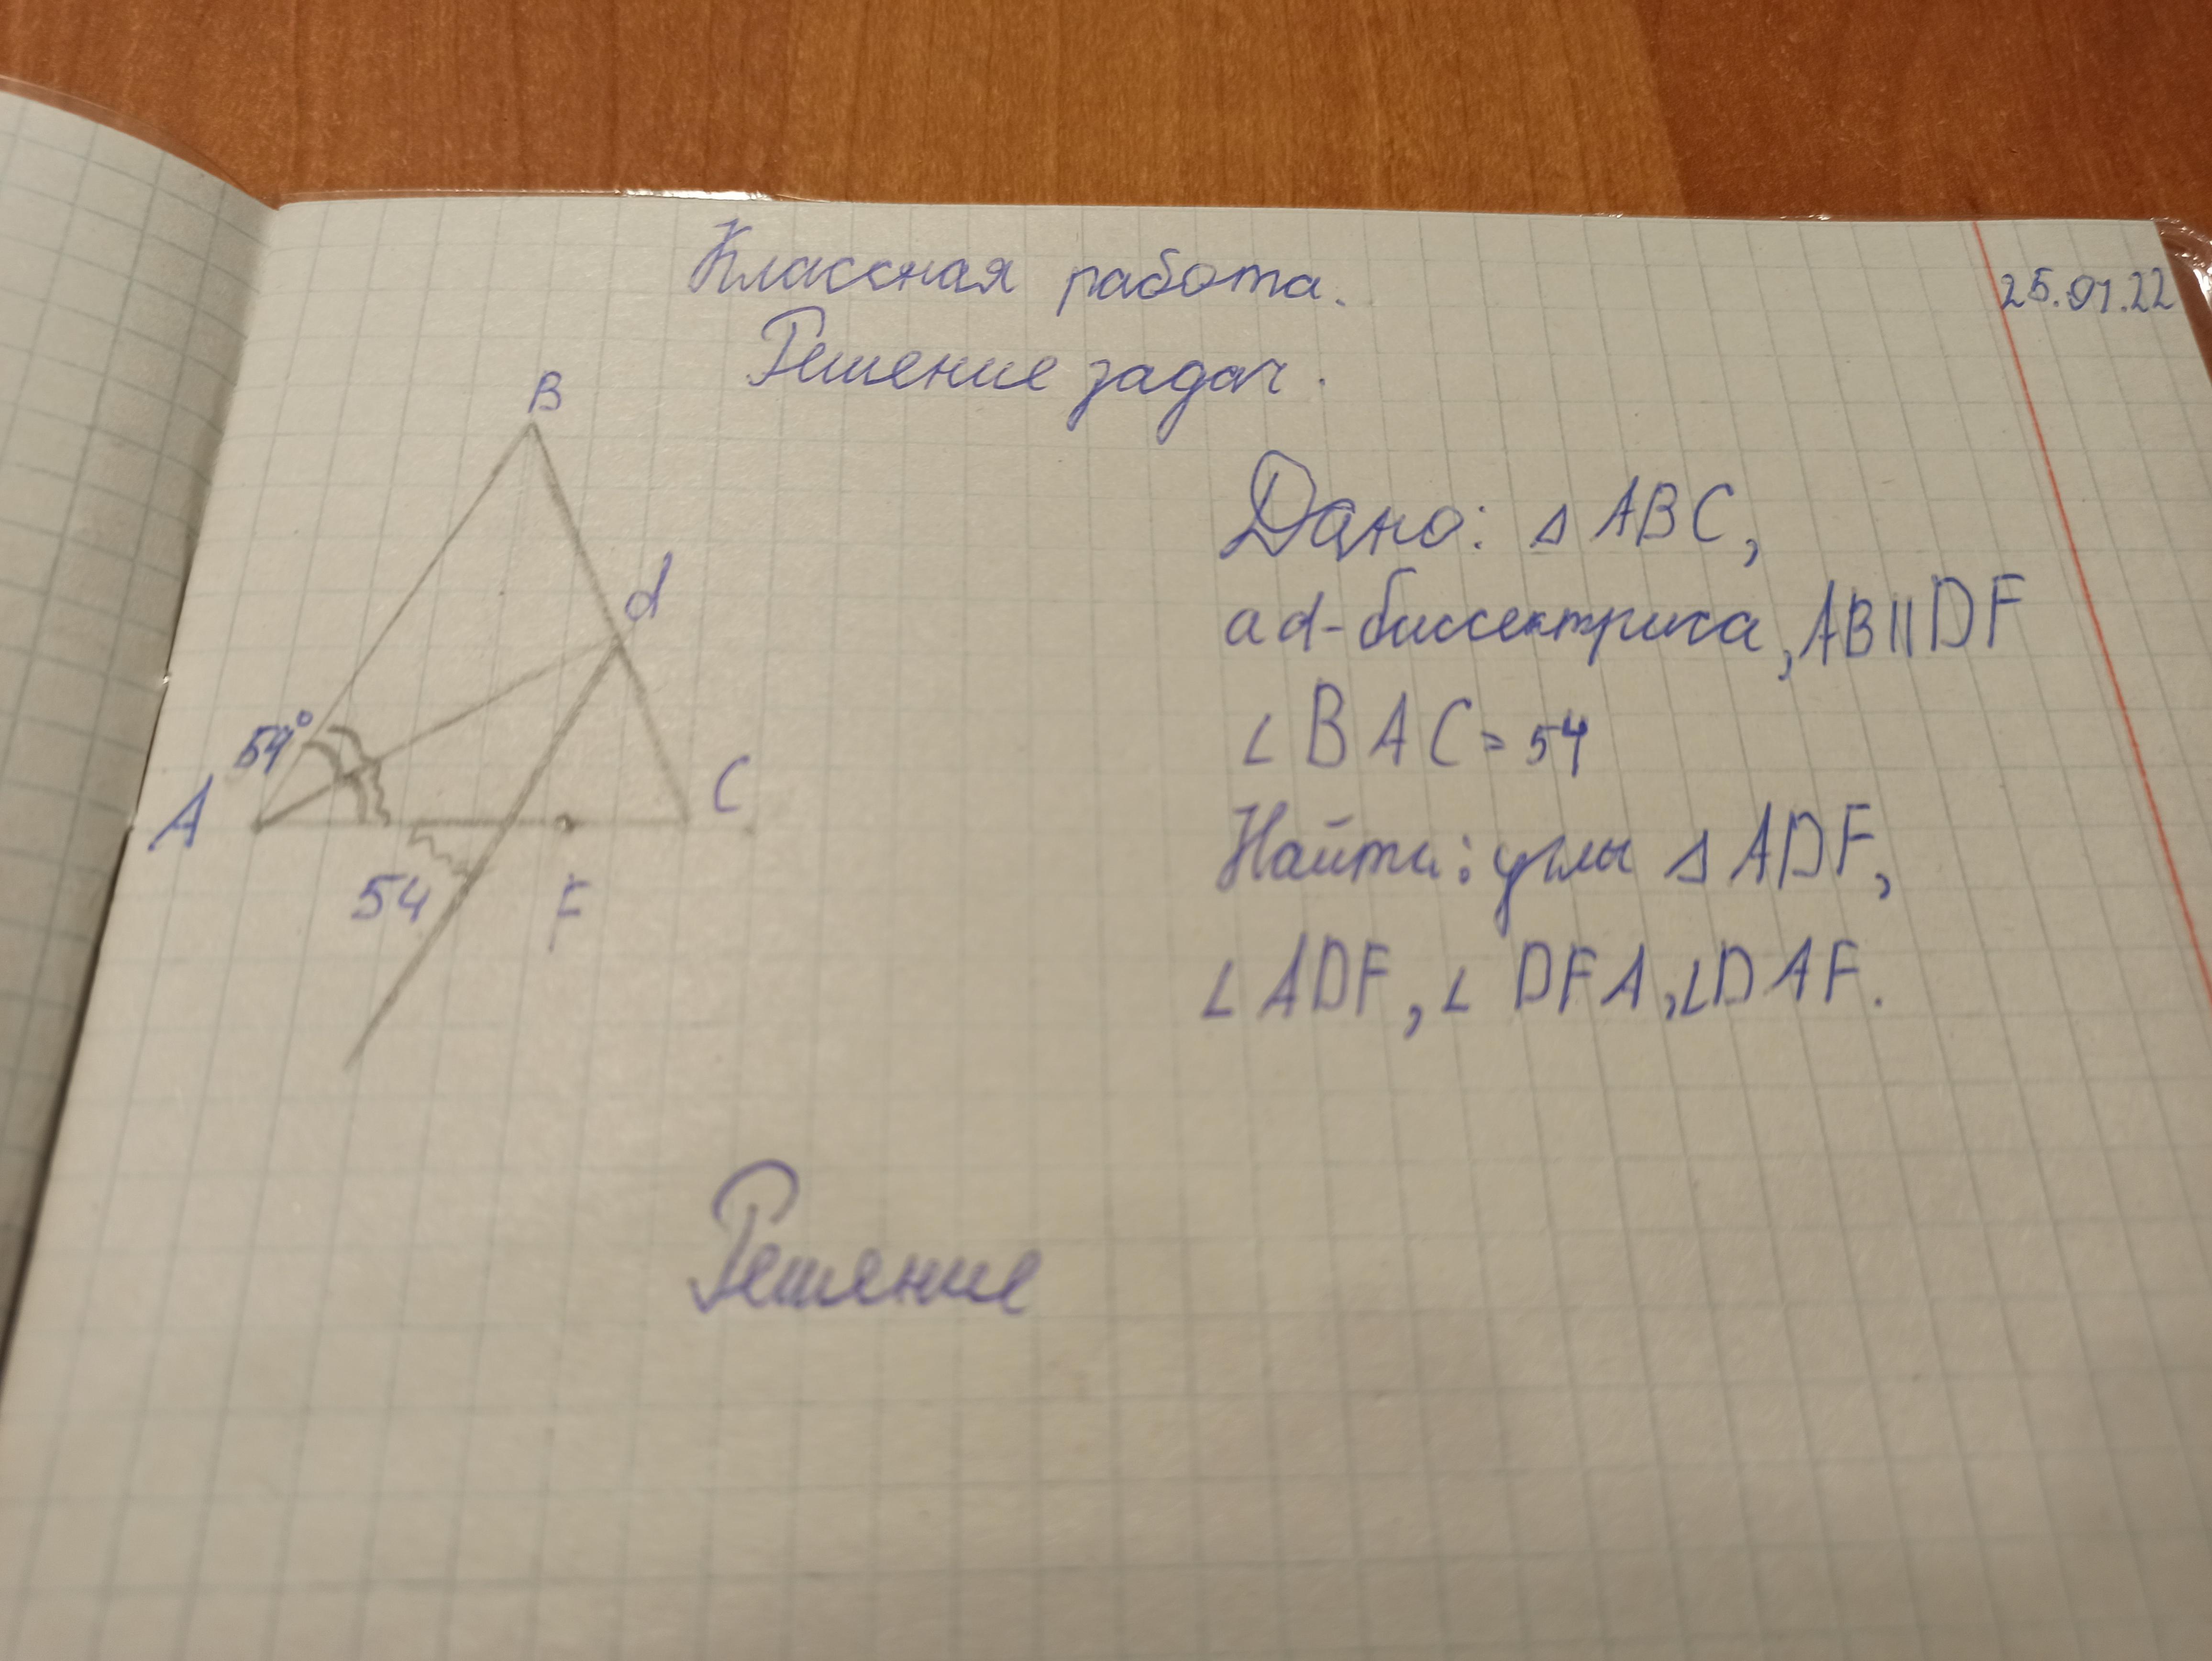 Классная работа.
25.01.22
Решение задач.
B
d
54°
A
C
54
F
Дано: △ ABC,
ad-биссектриса, AB||DF
∠BAC=54
Найти: углы △ ADF,
∠ADF, ∠DFA, ∠DAF.
Решение